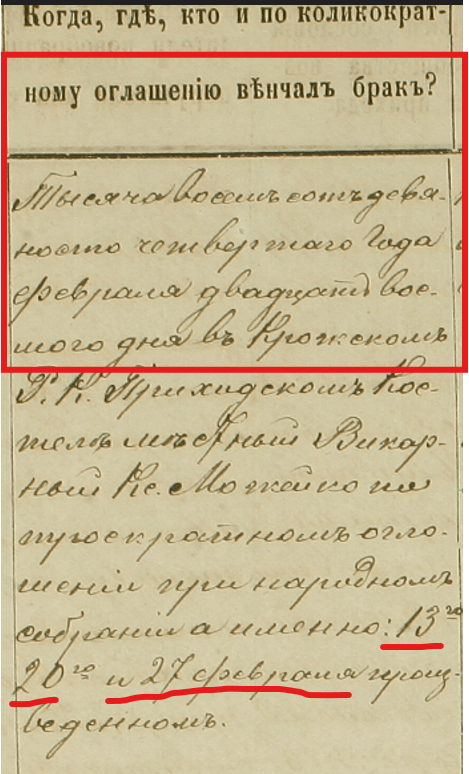 Когда, гдѣ, кто и по коликократ-
ному оглашенію вѣнчалъ бракъ?
Тысяча восемьсотъ девя-
носто четвертаго Года
февраля двадцать вось-
мого дня въ Крожскомъ
Р. К. Приходскомъ Кос-
телѣ мѣстный Викар-
ный Кс. Можейко по
троекратномъ огло-
шеніи при народномъ
собраніи а именно: 13го
20го и 27 февраля произ-
веденномъ.